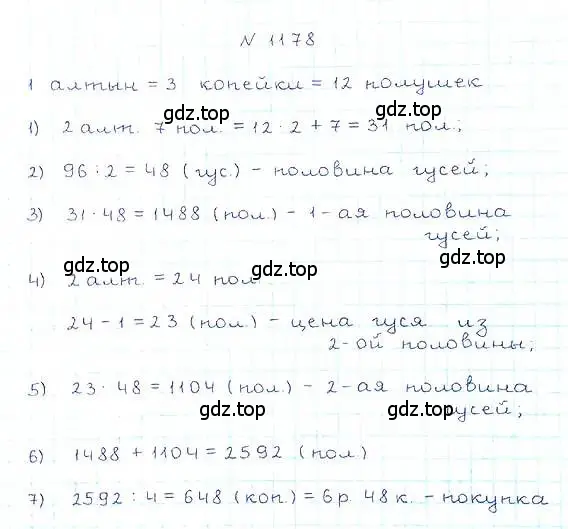 N 1178
1 алтын = 3 копейки = 12 полушек
gdz.top gdz.top
1) 2 алт. 7 пол. = 12 · 2 + 7 = 31 пол.;
2) 96 : 2 = 48 (гус.) - половина гусей;
3) 31 · 48 = 1488 (пол.) - 1-ая половина
гусей;
gdz.top gdz.top gdz.top
4) 2 алт. = 24 пол
24 - 1 = 23 (пол.) - цена гуся из
2-ой половины;
5) 23 · 48 = 1104 (пол.) - 2-ая половина
гусей;
gdz.top gdz.top
6) 1488 + 1104 = 2592 (пол)
7) 2592 : 4 = 648 (коп.) = 6 р. 48 к. - покупка